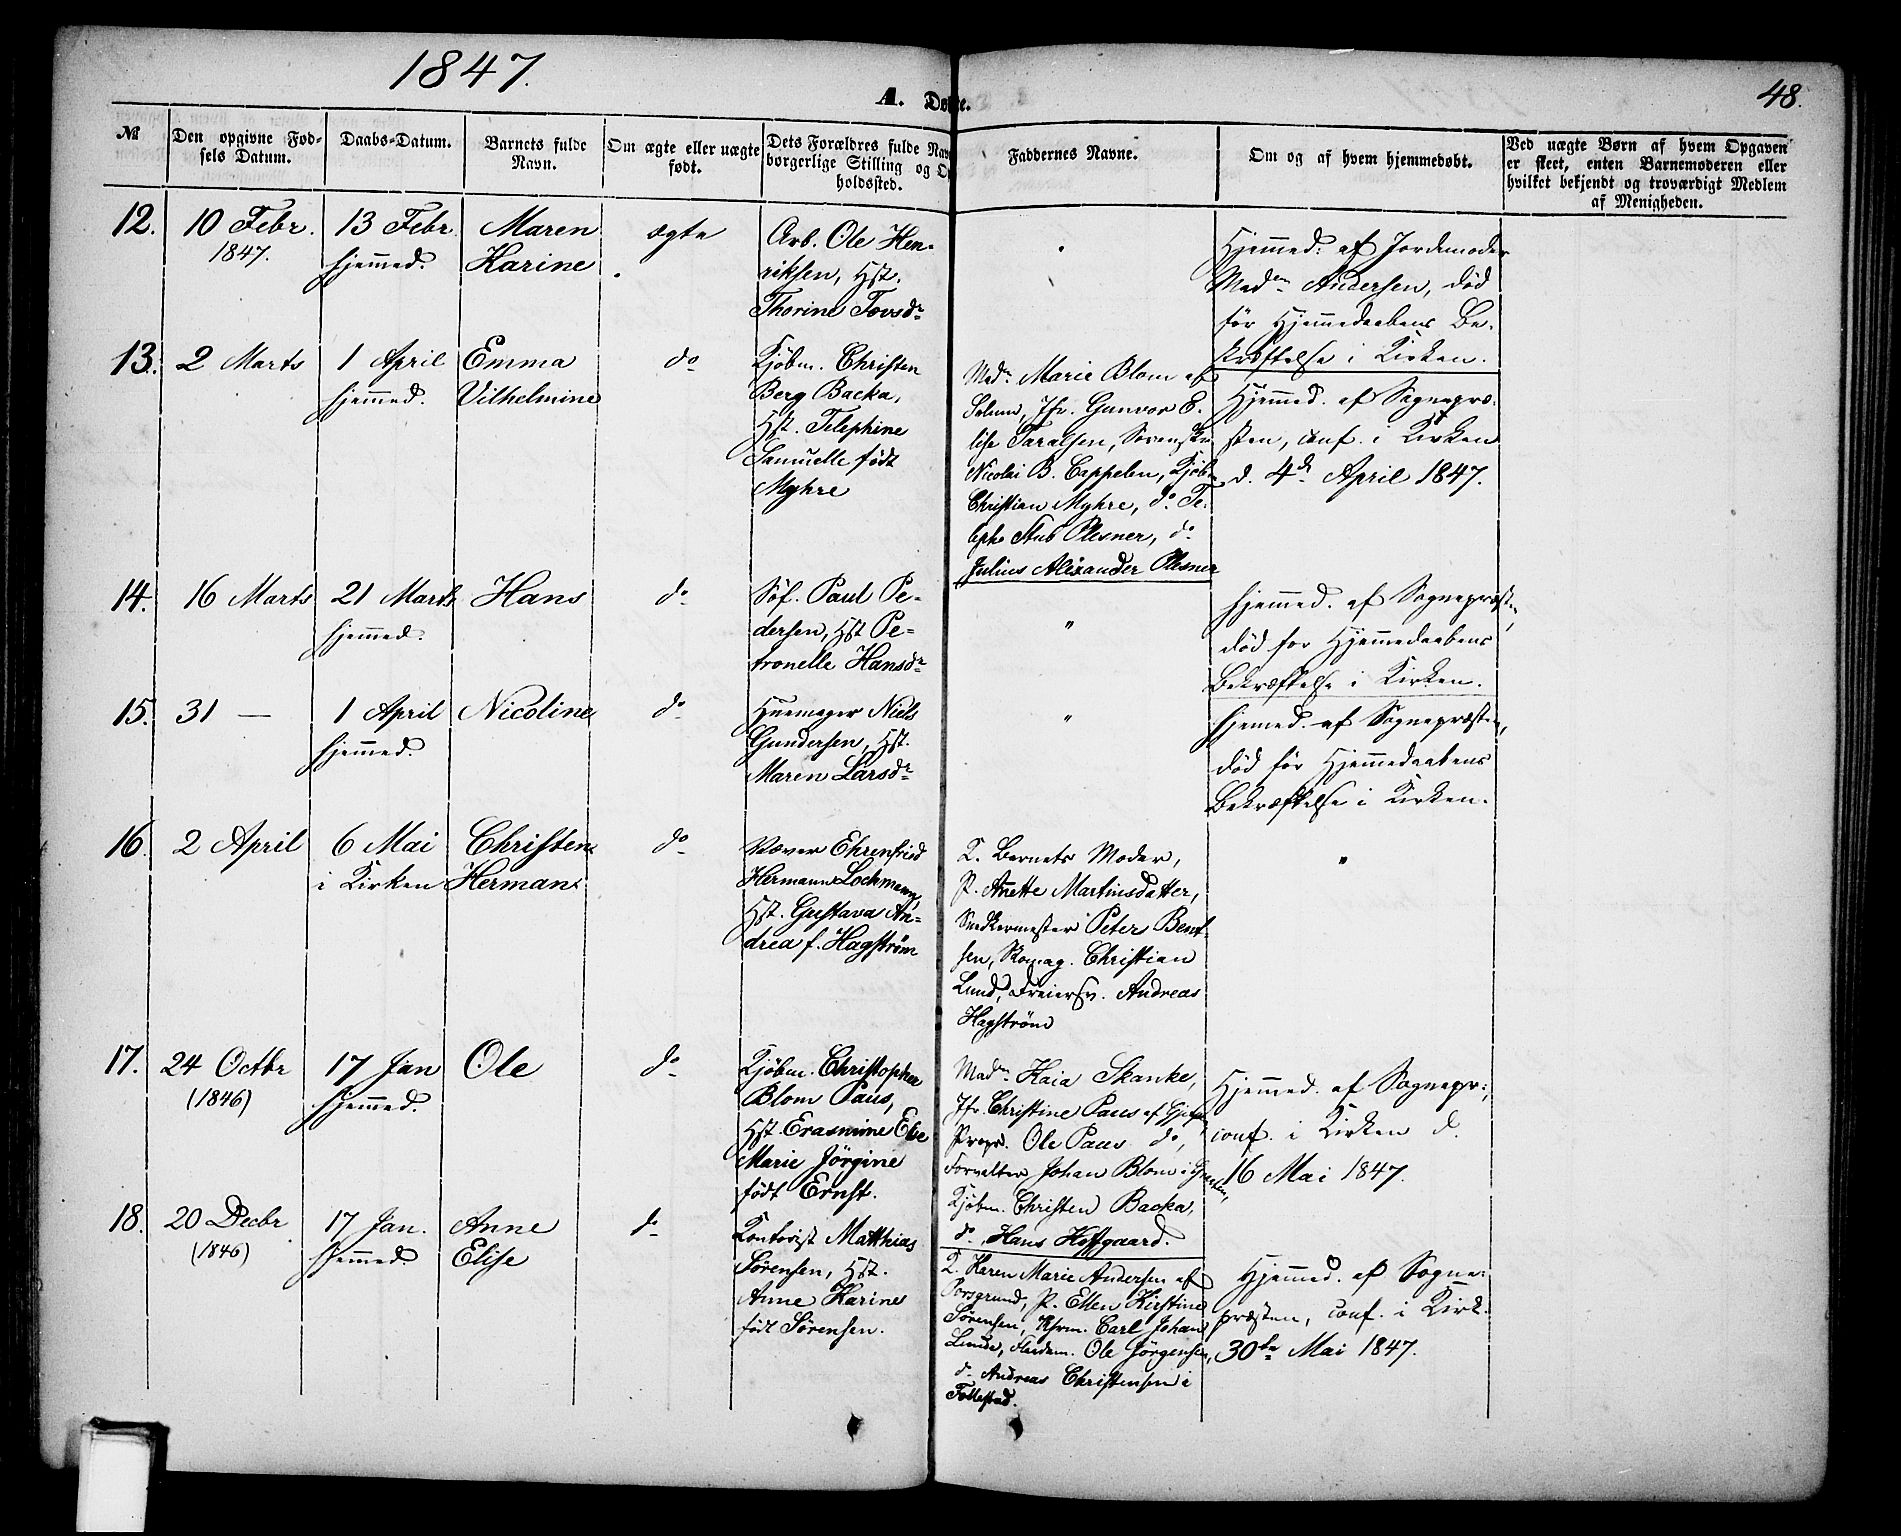 1847.
48.
A. Døbte.
No
Den opgivne Fød-
sels Datum.
Daabs-Datum.
Barnets fulde
Navn.
Om ægte eller uægte
født.
Dets Forældres fulde Navn
borgerlige Stilling og O
holdssted.
Faddernes Navne.
Om og af hvem hjemmedøbt.
Ved uægte Børn af hvem Opgaven
er skeet, enten Barnemoderen eller
hvilket bekjendt og troværdigt Medlem
af Menigheden.
12.
10 Febr.
1847.
13 Febr.
hjemmed.
Maren
Karine
ægte
Arb. Ole Hen-
riksen, Hst.
Thorine Tovsdr
Hjemmed. af Jordemoder
Madm Andersen, død
før Hjemmedaabens Be-
kræftelse i Kirken.
13.
2 Marts
1 April
hjemmed.
Emma
Vilhelmine
do
Kjøbm. Christen
Berg Backa,
Hst. Telephine
Samuelle født
Myhre
Madm Marie Blom af
Solum, Jfr. Gunvor E-
lise Taralsen, Sorenskr.
Nicolai B. Cappelen, Kjøbm
Christian Myhre, do Te-
leph Stub Plesner, do
Julius Alexander Plesner
Hjemmed. af Sognepræ-
sten, conf. i Kirken
d. 4de April 1847.
14.
16 Marts
21 Marts
hjemmed.
Hans
do
Søf. Paul Pe-
dersen, Hst Pe-
tronelle Hansdr
"
hjemmed. af Sognepræsten,
død før Hjemmedaabens
Bekræftelse i Kirken.
15.
31 —
1 April
hjemmed.
Nicoline
do
Huemager Niels
Gundersen, Hst.
Maren Larsdr
"
hjemmed. af Sognepræsten,
død før Hjemmedaabens
Bekræftelse i Kirken.
16.
2 April
6 Mai
i Kirken
Christen
Herman
do
Væver Ehrenfried
Hermann Lochmann,
Hst. Gustava An-
drea f. Hagstrøm
K. Barnets Moder,
P. Anette Martinsdatter,
Snedkermester Peters Bent-
sen, Skomag. Christian
Lund, Dreiersv. Andreas
Hagstrøm
"
17.
24 Octbr
(1846)
17 Jan
hjemmed.
Ole
do
Kjøbm. Christopher
Blom Paus,
Hst. Erasmine Else
Marie Jörgine
født Ernst.
Madm Kaia Skanke,
Jfr. Christine Paus af Gjerpen
Propr. Ole Paus do,
Forvalter Johan Blom i
Kjøbm. Christen Backa,
do Hans Hoffgaard.
Hjemmed. af Sognepr:,
conf. i Kirken d.
16 Mai 1847.
18.
20 Decbr
(1846)
17 Jan.
hjemmed.
Anne
Elise
do
Kontorist Matthias
Sørensen, Hst.
Anne Karine
født Sørensen.
K. Karen Marie Andersen af
Porsgrund, P. Ellen Kirstine
Sørensen, Carl Johan
Lunde, Ole Jörgensen,
do Andreas Christensen i
Follestad.
Hjemmed. af Sogne-
præsten, conf. i Kirk.
30te Mai 1847.